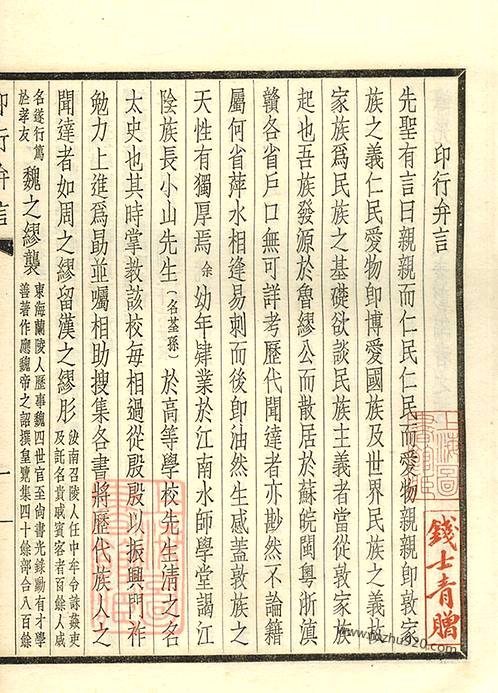 印行弁言
先聖有言曰親親而仁民仁民而愛物親親即敦家
族之義仁民愛物即博愛國族及世界民族之義故
家族爲民族之基礎欲談民族主義者當從敦家族
起也吾族發源於魯繆公而散居於蘇皖閩粤浙滇
贛各省戶口無可詳考歷代聞達者亦尠然不論籍
屬何省萍水相逢易刺而後即油然生感蓋敦族之
天性有獨厚焉余幼年肄業於江南水師學堂謁江
陰族長小山先生(名荃孫)於高等學校先生清之名
太史也其時掌教該校每相過從殷殷以振興門祚
勉力上進爲勗並囑相助搜集各書將歷代族人之
聞達者如周之繆留漢之繆肜汝南召陵人任中牟令誅姦吏
及託名貴戚賓客者百餘人威
名遂行篤
於孝友魏之繆襲東海蘭陵人歷事魏四世官至尙書光錄勳有才學
善著作應魏帝之詔撰皇覽集四十餘部合八百餘
印行弁言
一
錢士青贈
www.kozhu920.com